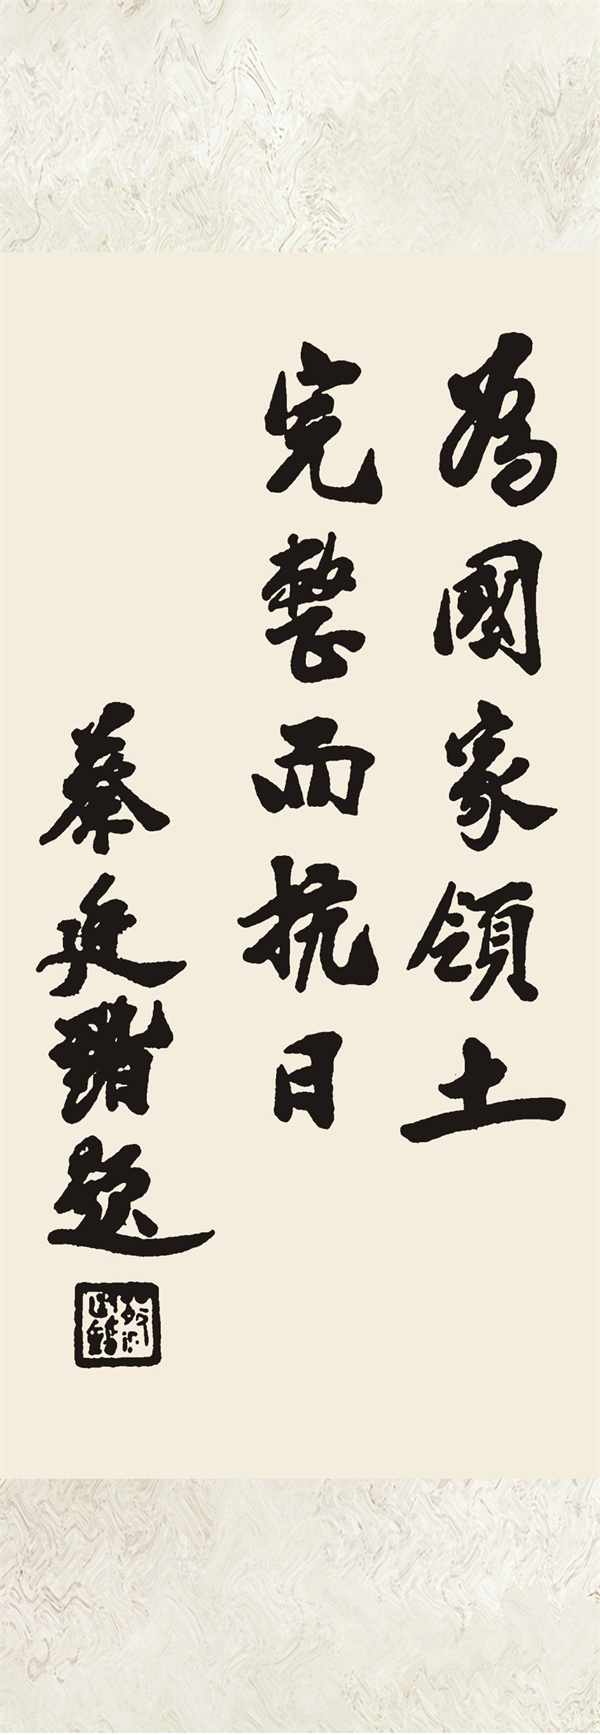 為國家領土
完整而抗日
蔡廷鍇題